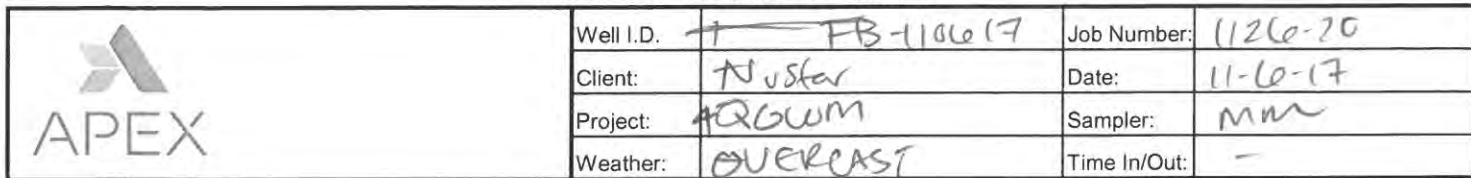 APEX
Well I.D. FB-110617 Job Number: 1126-20
Client: NuStar Date: 11-6-17
Project: 4QGWM Sampler: MM
Weather: OVERCAST Time In/Out: —